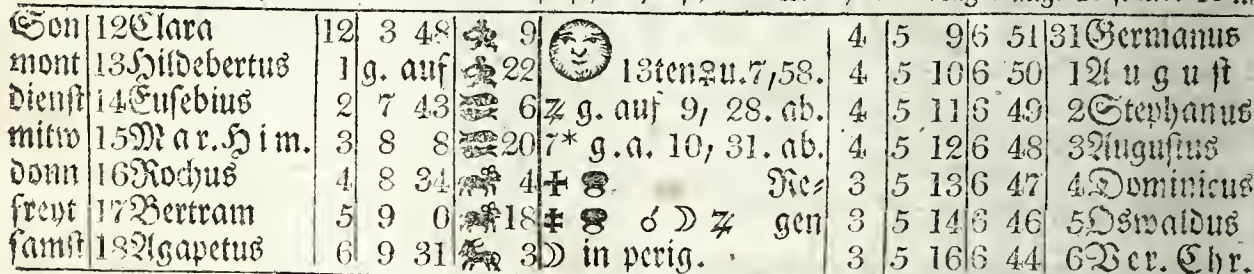 Son 12 Clara 12 3 48 9 4 5 9 6 51 31 Germanus
mont 13 Hildebertus 1 g. auf 22 13ten ♀ u. 7, 58. 4 5 10 6 50 1 August
dienst 14 Eusebius 2 7 43 6 ♃ g. auf 9, 28. ab. 4 5 11 6 49 2 Stephanus
mitw 15 Mar. Him. 3 8 8 20 7* g. a. 10, 31. ab. 4 5 12 6 48 3 Augustus
donn 16 Rochus 4 8 34 4 Re⸗ 3 5 13 6 47 4 Dominicus
freyt 17 Bertram 5 9 0 18 ☌ ☽ ♃ gen 3 5 14 6 46 5 Oswaldus
samst 18 Agapetus 6 9 31 3 ☽ in perig. 3 5 16 6 44 6 Ver. Chr.